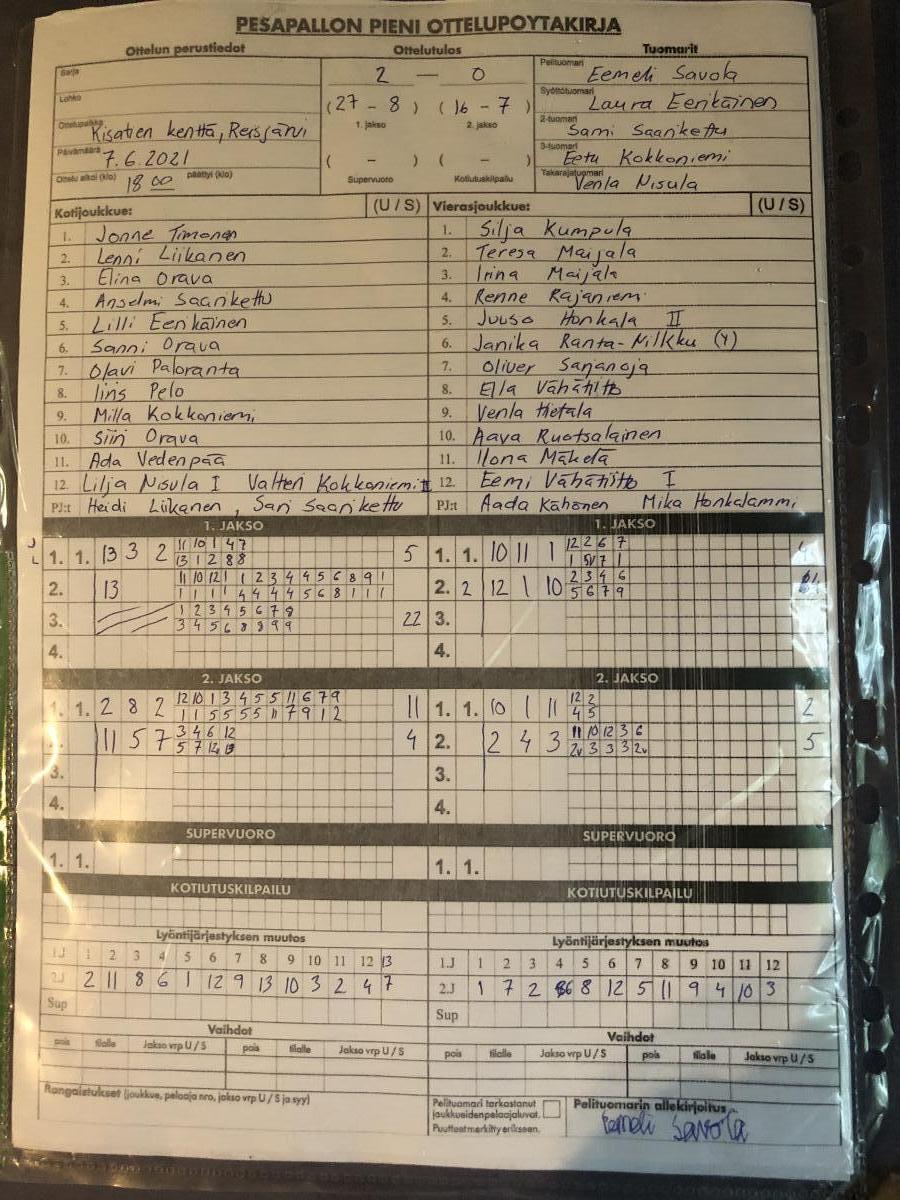 PESAPALLON PIENI OTTELUPOYTAKIRJA
Ottelun perustiedot Ottelutulos Tuomarit
Sarja
Lohko
Ottelupaikka Kisatien kenttä, Reisjärvi
Päivämäärä 7.6.2021
Ottelu alkoi (klo) 18 00 päättyi (klo)
2 — 0
(27 - 8) (16 - 7)
1. jakso 2. jakso
( - ) ( - )
Supervuoro Kotiutuskilpailu
Pelituomari Eemeli Savola
Syöttötuomari Laura Eerikäinen
2-tuomari Sami Saarikettu
3-tuomari Eetu Kokkoniemi
Takarajatuomari Venla Nisula
Kotijoukkue: (U / S) Vierasjoukkue: (U / S)
1. Jonne Timonen 1. Silja Kumpula
2. Lenni Liikanen 2. Teresa Maijala
3. Elina Orava 3. Irina Maijala
4. Anselmi Saarikettu 4. Renne Rajaniemi
5. Lilli Eerikäinen 5. Juuso Honkala II
6. Sanni Orava 6. Janika Ranta-Nilkku (Y)
7. Olavi Paloranta 7. Oliver Sarjanoja
8. Iiris Pelo 8. Ella Vähätiitto
9. Milla Kokkoniemi 9. Venla Hietala
10. Siiri Orava 10. Aava Ruotsalainen
11. Ada Vedenpää 11. Ilona Mäkelä
12. Lilja Nisula I Valtteri Kokkoniemi II 12. Eemi Vähätiitto I
PJ:t Heidi Liikanen, Sari Saarikettu PJ:t Aada Kähönen Mika Honkalammi
1. JAKSO 1. JAKSO
J
L
1. 1. 13 3 2 11 10 1 4 7 5 1. 1. 10 11 1 12 2 6 7
13 1 2 8 8
2. 13 11 10 12 1 1 2 3 4 4 5 6 8 9 1 2. 2 12 1 10 2 3 4 6
1 1 1 1 4 4 4 4 4 5 6 8 1 1 1 5 6 7 9
3. 1 2 3 4 5 6 7 8 22 3.
3 4 5 6 8 8 9 9
4. 4.
2. JAKSO 2. JAKSO
1. 1. 2 8 2 12 10 1 3 4 5 5 11 6 7 9 11 1. 1. 10 1 11 12 2 2
1 1 5 5 5 5 5 11 7 9 1 2 4 5
11 5 7 3 4 6 12 4 2. 2 4 3 11 10 12 3 6 5
5 7 12 13 2v 3 3 3 2v
3. 3.
4. 4.
SUPERVUORO SUPERVUORO
1. 1. 1. 1.
KOTIUTUSKILPAILU KOTIUTUSKILPAILU
Lyöntijärjestyksen muutos Lyöntijärjestyksen muutos
1.J 1 2 3 4 5 6 7 8 9 10 11 12 13 1.J 1 2 3 4 5 6 7 8 9 10 11 12
2.J 2 11 8 6 1 12 9 13 10 3 2 4 7 2.J 1 7 2 6 8 12 5 11 9 4 10 3
Sup Sup
Vaihdot Vaihdot
pois tilalle Jakso vrp U / S pois tilalle Jakso vrp U / S pois tilalle Jakso vrp U / S pois tilalle Jakso vrp U / S
Rangaistukset (joukkue, pelaaja nro, jakso vrp U / S ja syy)
Pelituomari tarkastanut
joukkueiden pelaajaluvat.
Puutteet merkitty erikseen.
Pelituomarin allekirjoitus
Eemeli Savola